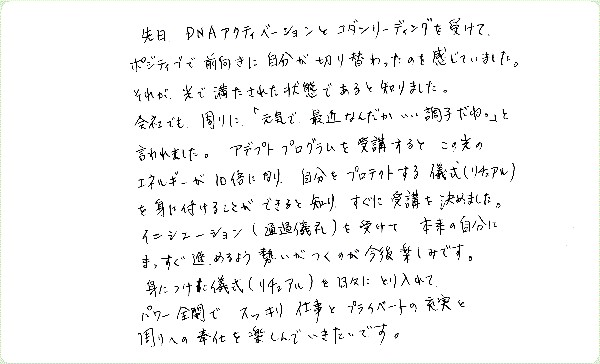 先日 DNAアクティベーションとコダンリーディングを受けて、
ポジティブで前向きに自分が切り替わったのを感じていました。
それが、光で満たされた状態であると知りました。
会社でも、周りに、「元気で、最近なんだかいい調子だね。」と
言われました。アデプトプログラムを受講すると この光の
エネルギーが10倍になり、自分をプロテクトする儀式(リチュアル)
を身に付けることができると知り、すぐに受講を決めました。
イニシエーション(通過儀礼)を受けて 本来の自分に
まっすぐ進めるよう勢いがつくのが今後楽しみです。
身につけた儀式(リチュアル)を日々にとり入れて、
パワー全開で スッキリ 仕事とプライベートの充実と
周りへの奉仕を楽しんでいきたいです。